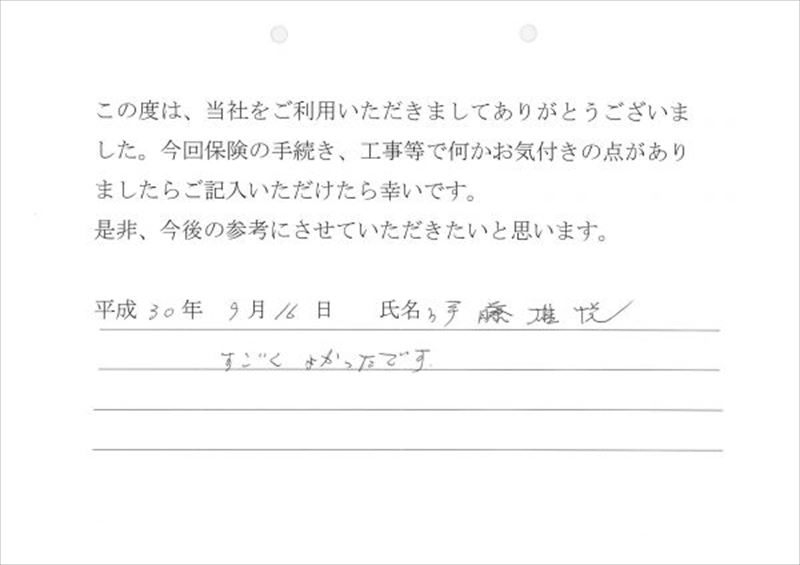 この度は、当社をご利用いただきましてありがとうございま
した。今回保険の手続き、工事等で何かお気付きの点があり
ましたらご記入いただけたら幸いです。
是非、今後の参考にさせていただきたいと思います。
平成 30 年 9 月 16 日 氏名 藤 雄 悦
すごく よかったです.